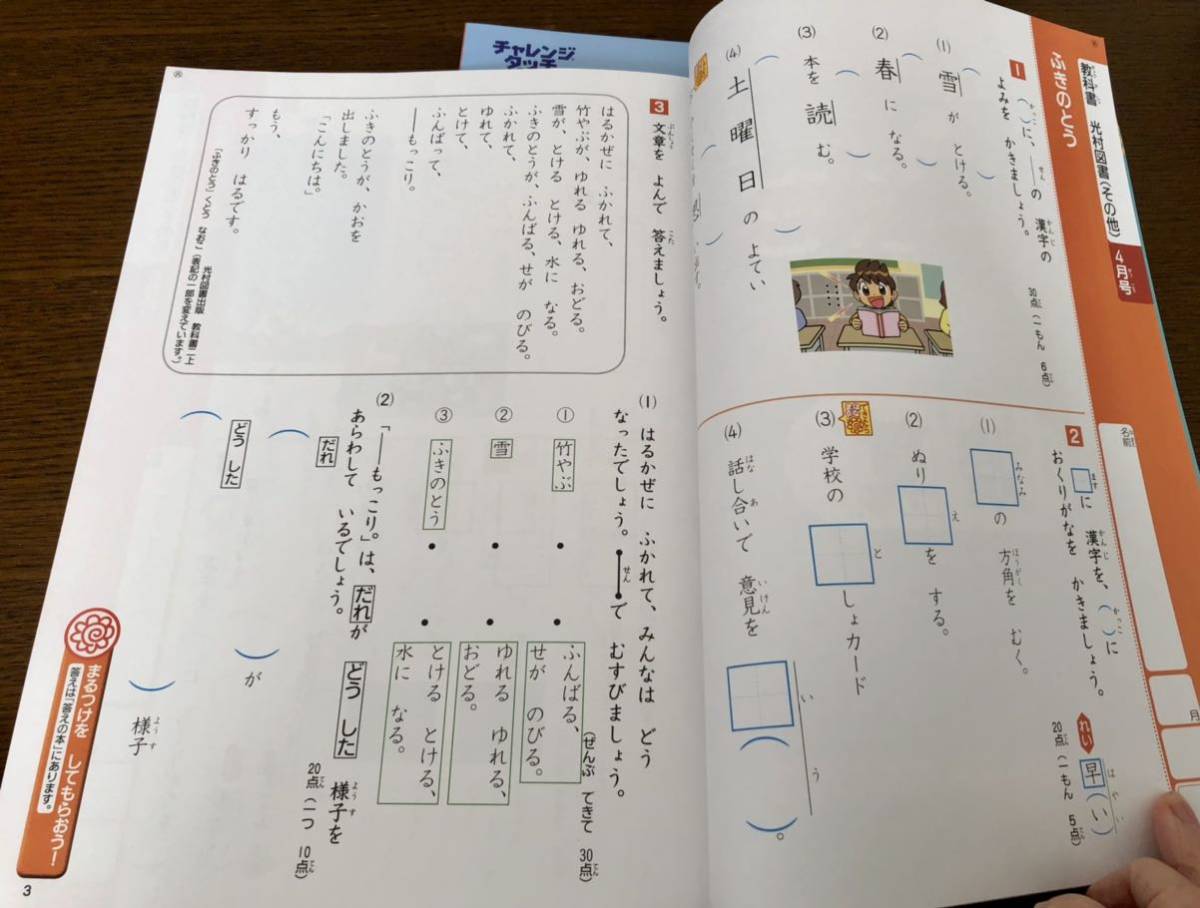 チャレンジ
タッチ
教科書 光村図書(その他)
4月号
ふきのとう
名前
月
1
( )に、――の 漢字の
よみを かきましょう。
30点(一もん 6点)
(1) 雪が とける。
(2) 春に なる。
(3) 本を 読む。
(4) 土曜日の よてい
2
□に 漢字を、( )に
おくりがなを かきましょう。
20点(一もん 5点)
れい 早(い)
はや い
(1) □の 方角を むく。
みなみ
(2) ぬり□を する。
え
(3) 学校の □しょカード
と
(4) 話し合いで 意見を □( )。
い う
3
文章を よんで 答えましょう。
はるかぜに ふかれて、
竹やぶが、ゆれる ゆれる、おどる。
雪が、とける とける、水に なる。
ふきのとうが、ふんばる、せが のびる。
ふかれて、
ゆれて、
とけて、
ふんばって、
――もっこり。
ふきのとうが、かおを
出しました。
「こんにちは。」
もう、
すっかり はるです。
「ふきのとう」くどう なおこ(表記の一部を変えています。)
光村図書出版 教科書二上
(1) はるかぜに ふかれて、みんなは どう
なったでしょう。――で むすびましょう。
せん
(ぜんぶ できて 30点)
① 竹やぶ
② 雪
③ ふきのとう
ふんばる、
せが のびる。
ゆれる ゆれる、
おどる。
とける とける、
水に なる。
(2) 「――もっこり。」は、だれが どう した 様子を
あらわして いるでしょう。
20点(一つ 10点)
だれ
( )が
どう した
( )様子
まるつけを してもらおう！
答えは「答えの本」にあります。
3